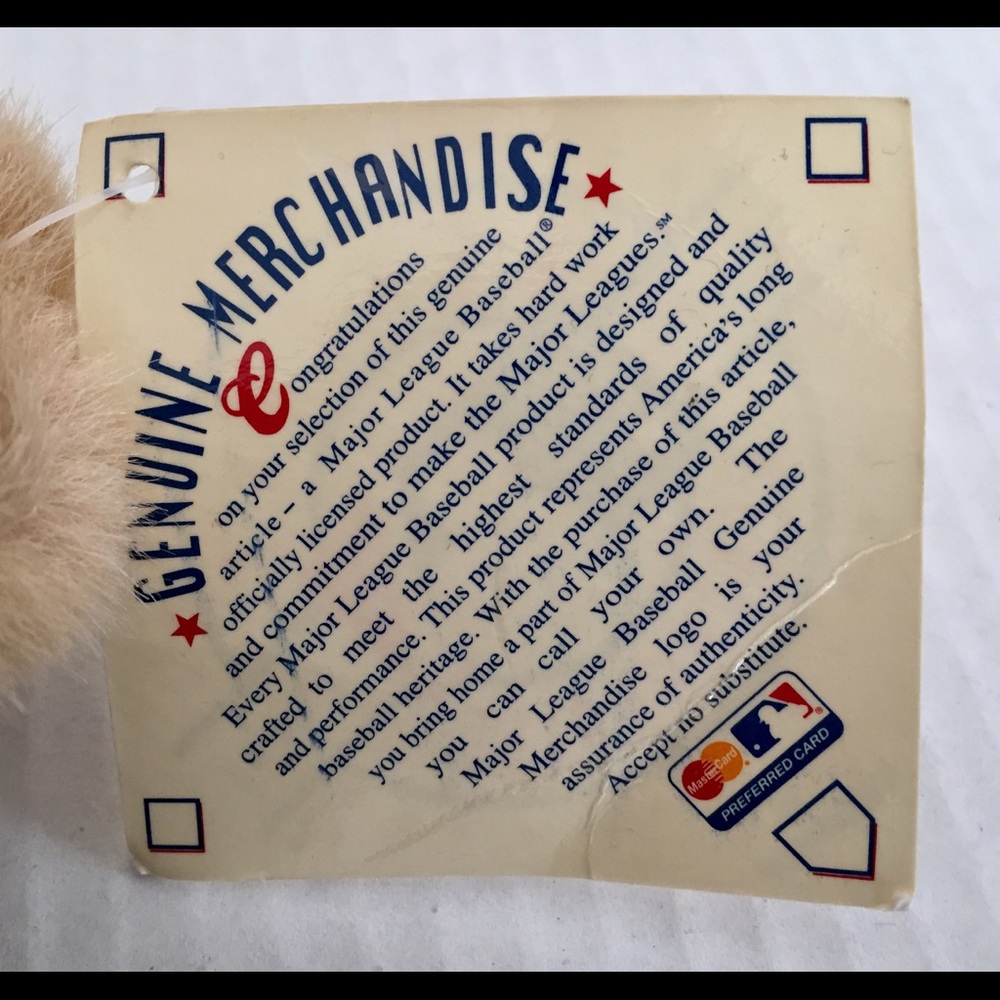 GENUINE MERCHANDISE
Congratulations
on your selection of this genuine
article – a Major League Baseball®
officially licensed product. It takes hard work
and commitment to make the Major Leagues.℠
Every Major League Baseball product is designed and
crafted to meet the highest standards of quality
and performance. This product represents America's long
baseball heritage. With the purchase of this article,
you bring home a part of Major League Baseball
you can call your own. The
Major League Baseball Genuine
Merchandise logo is your
assurance of authenticity.
Accept no substitute.
MasterCard
PREFERRED CARD